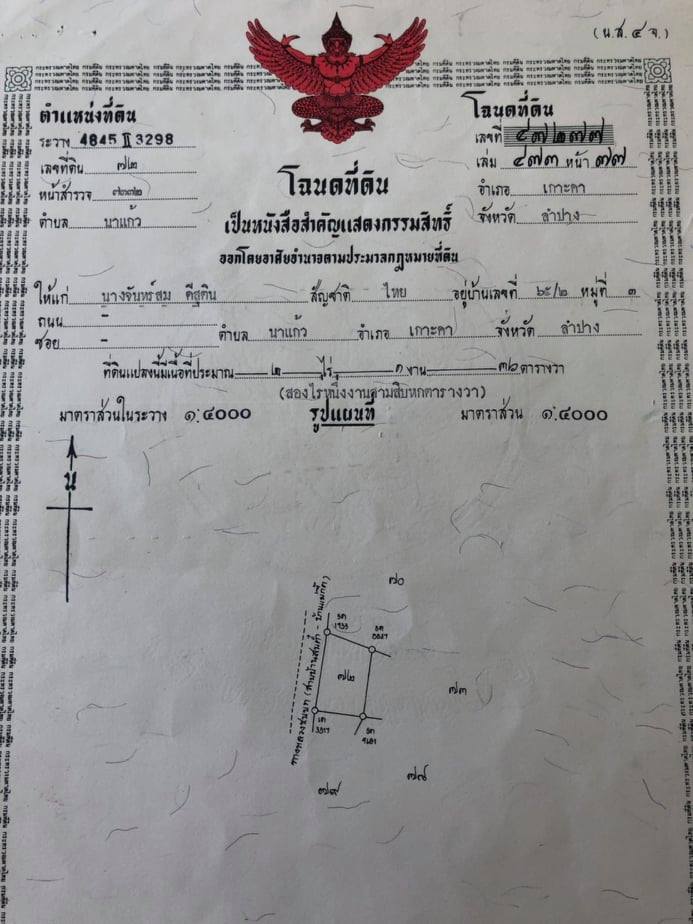 (น.ส.๔ จ.)
ตำแหน่งที่ดิน
ระวาง 4845 II 3298
เลขที่ดิน ๗๒
หน้าสำรวจ
ตำบล นาแก้ว
โฉนดที่ดิน
เลขที่ ๔๗๒๗๗
เล่ม ๔๗๓ หน้า ๗๗
อำเภอ เกาะคา
จังหวัด ลำปาง
โฉนดที่ดิน
เป็นหนังสือสำคัญแสดงกรรมสิทธิ์
ออกโดยอาศัยอำนาจตามประมวลกฎหมายที่ดิน
ให้แก่ นางจันทร์สม สัญชาติ ไทย อยู่บ้านเลขที่ ๖๕/๒ หมู่ที่ ๓
ถนน - ตำบล นาแก้ว อำเภอ เกาะคา จังหวัด ลำปาง
ซอย -
ที่ดินแปลงนี้มีเนื้อที่ประมาณ ๒ ไร่ ๑ งาน ๓๖ ตารางวา
(สองไร่หนึ่งงานสามสิบหกตารางวา)
มาตราส่วนในระวาง ๑:๔๐๐๐ รูปแผนที่ มาตราส่วน ๑:๔๐๐๐
น
๗๐
๗๒
๗๓
๗๘
๗๙